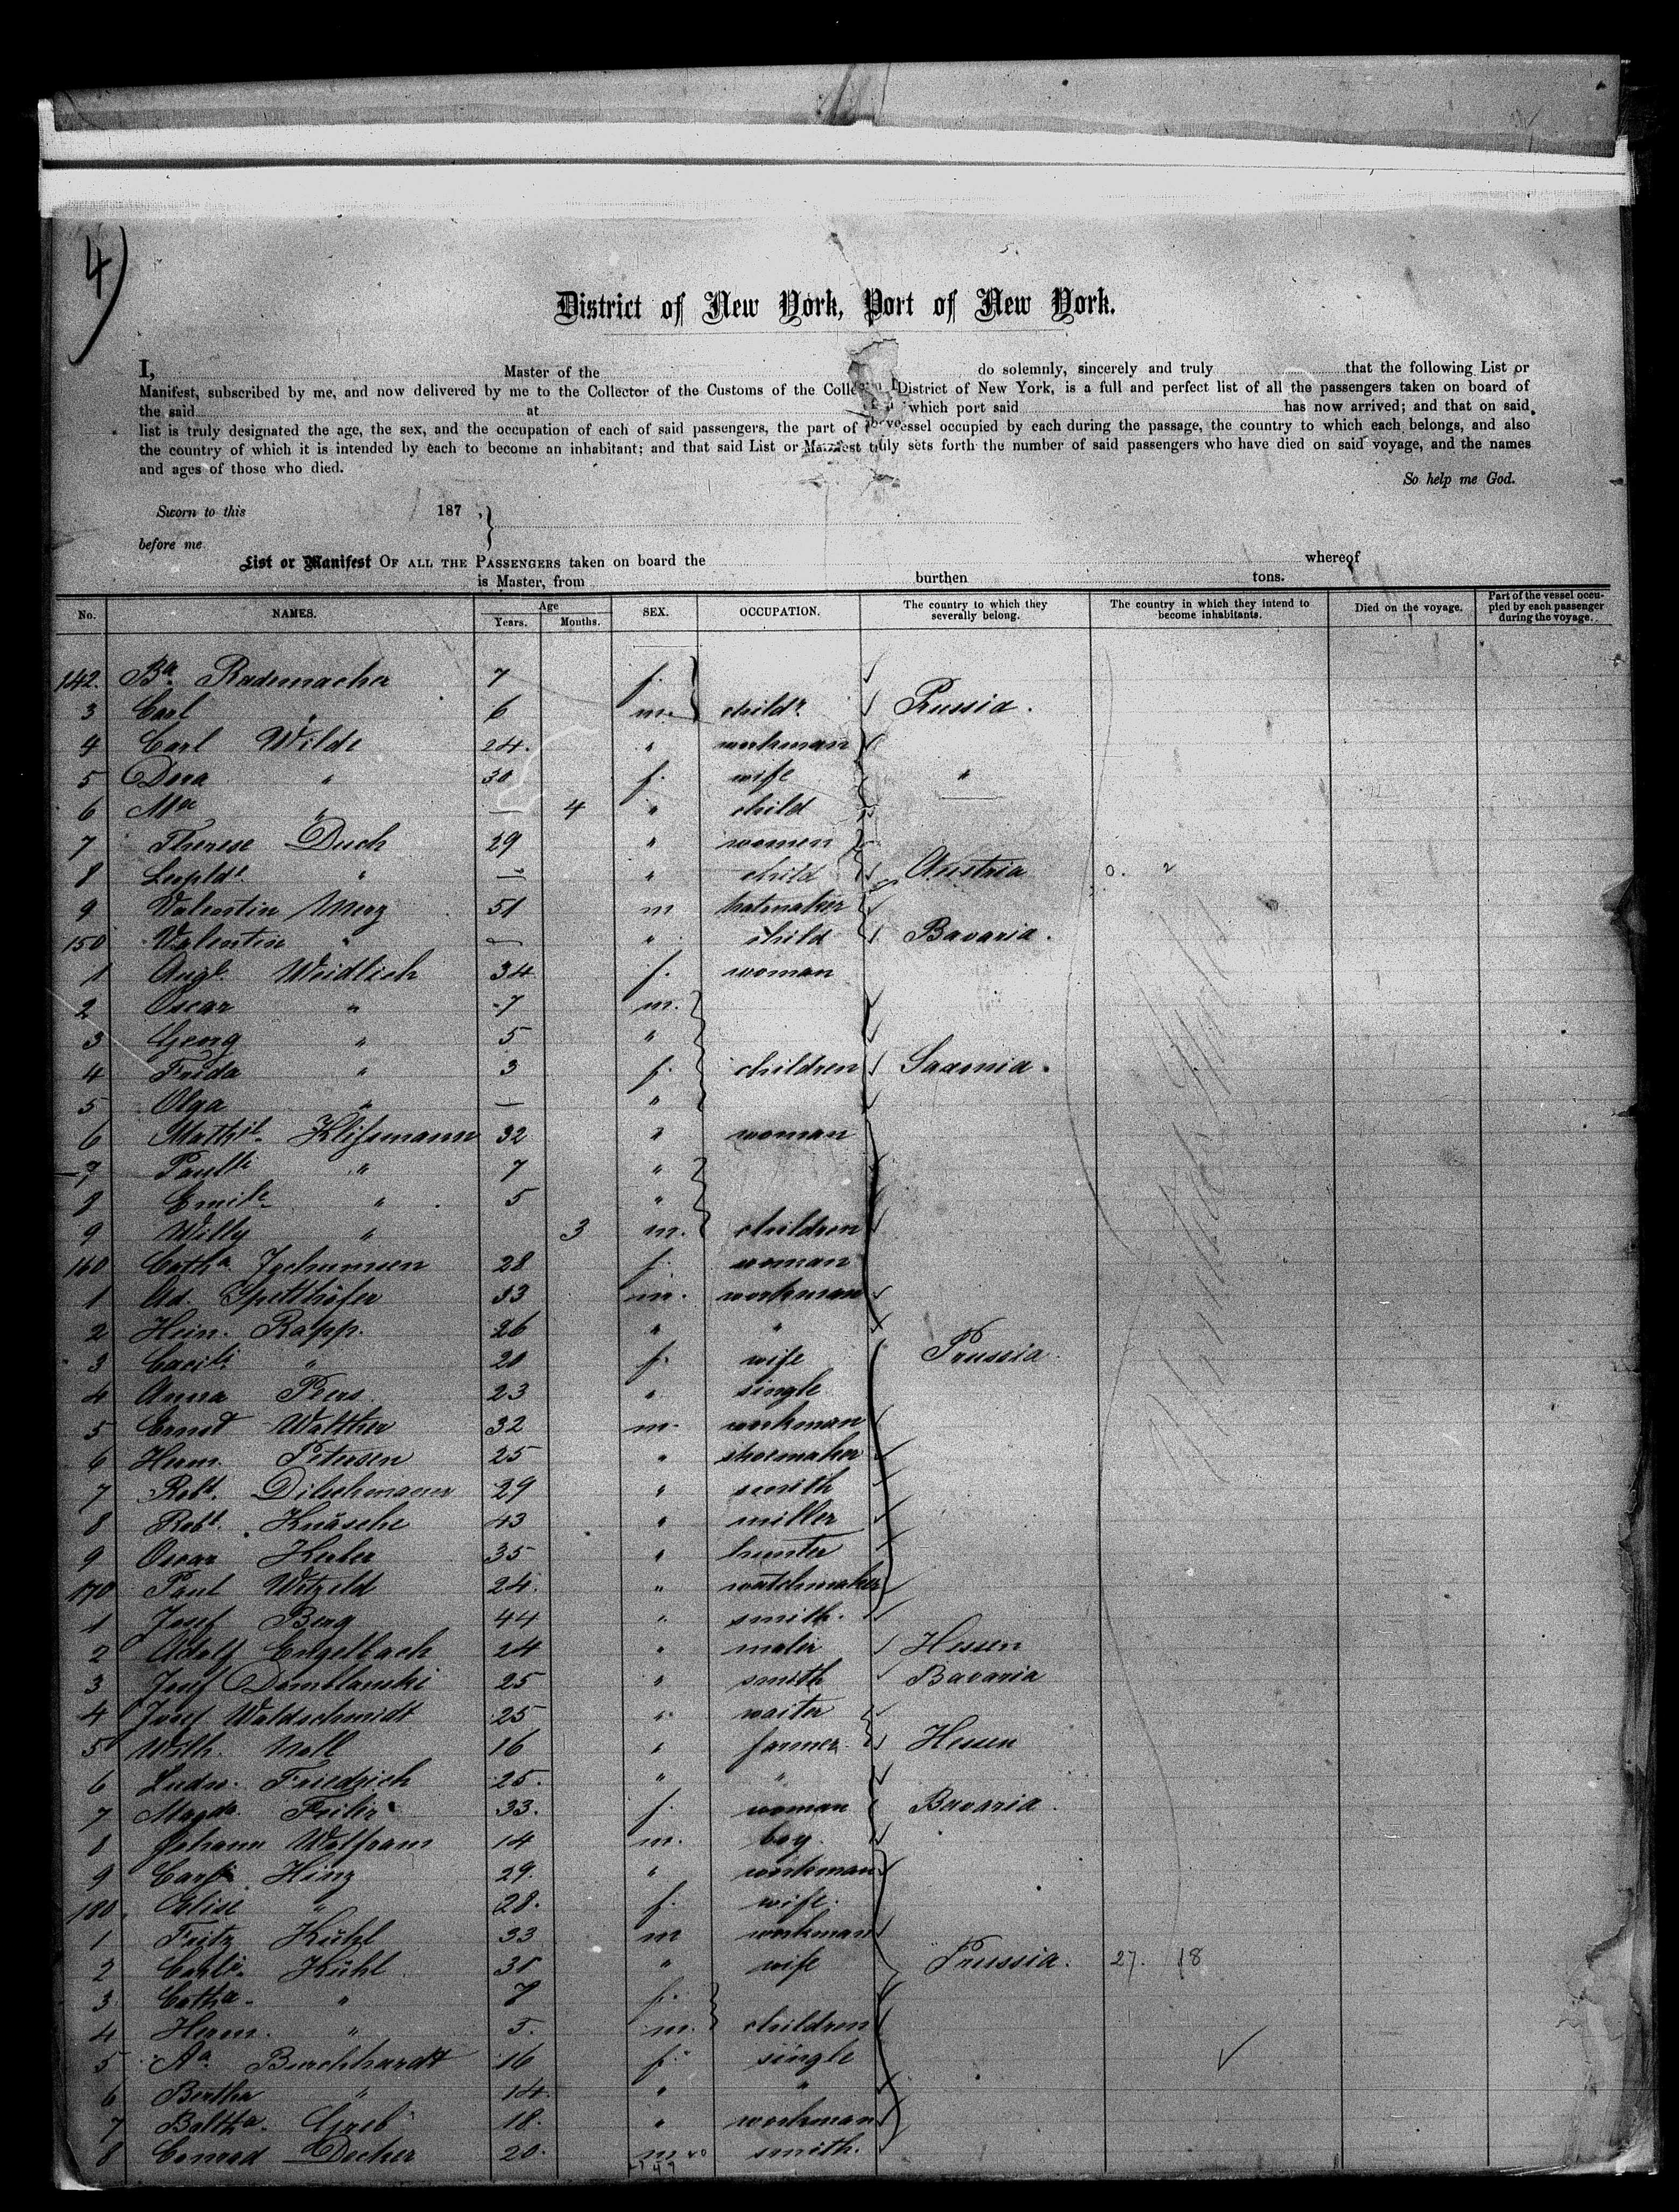 4)
District of New York, Port of New York.
I, Master of the do solemnly, sincerely and truly that the following List or
Manifest, subscribed by me, and now delivered by me to the Collector of the Customs of the Colle District of New York, is a full and perfect list of all the passengers taken on board of
the said at which port said has now arrived; and that on said
list is truly designated the age, the sex, and the occupation of each of said passengers, the part of vessel occupied by each during the passage, the country to which each belongs, and also
the country of which it is intended by each to become an inhabitant; and that said List or Manifest truly sets forth the number of said passengers who have died on said voyage, and the names
and ages of those who died.
So help me God.
Sworn to this 187 ,
before me
List or Manifest OF ALL THE PASSENGERS taken on board the whereof
is Master, from burthen tons.
No. NAMES. Age Years. Months. SEX. OCCUPATION. The country to which they severally belong. The country in which they intend to become inhabitants. Died on the voyage. Part of the vessel occupied by each passenger during the voyage.
142. Ba Rademacher 7 f.
3 Carl " 6 m. childr. Prussia.
4 Carl Wilde 24. " workman
5 Dora " 30 f. wife "
6 Me " — 4 " child
7 Therese Duch 29 " women
8 Leopldе " — " child Austria 0. 2
9 Valentin Merz 51 m hatmaker
150 Valentin " — " child Bavaria.
1 Augte Weidlich 34 f. woman
2 Oscar " 7 m.
3 Georg " 5 "
4 Frida " 3 f. children Saxonia.
5 Olga " — "
6 Mathil. Klissmann 32 " woman
7 " 7 "
8 Emile " 5 "
9 Willy " 3 m. children
160 Catha 28 f. woman
1 Ad. Spetthöfer 53 m. workman
2 Hein. Rapp. 26 " "
3 Cacili " 20 f. wife Prussia
4 Anna Peers 23 " single
5 Ernst Walther 32 m. workman
6 Herm. Petersen 25 " shoemaker
7 Robt. 29 " smith
8 Robt. Knäsche 43 " miller
9 Oscar Kerber 35 " hunter
170 Paul Witzeld 24. " watchmaker
1 Josef Berg 44 " smith.
2 Adolf Engelbach 24 " maler Hessen
3 Josef Domblanski 25 " smith Bavaria
4 Josef Waldschmidt 25 " waiter
5 Wilh. Noll 16 " farmer Hessen
6 Ludw. Friedrich 25. " "
7 Magda. 33. f. woman Bavaria
8 Johann Wolfram 14 m. boy.
9 Hinz 29. " workman
180. Elise " 28. f. wife.
1 Fritz Kühl 33 m workman
2 Kühl 31 " wife Prussia. 27. 18
3 Catha. " 8 f.
4 Herm. " 5. m. children
5 Aa Burchhardt 16 f. single
6 Bertha " 14. " "
7 Baltha. Greb 18. " workman
8 Conrad Decher 20. m smith.